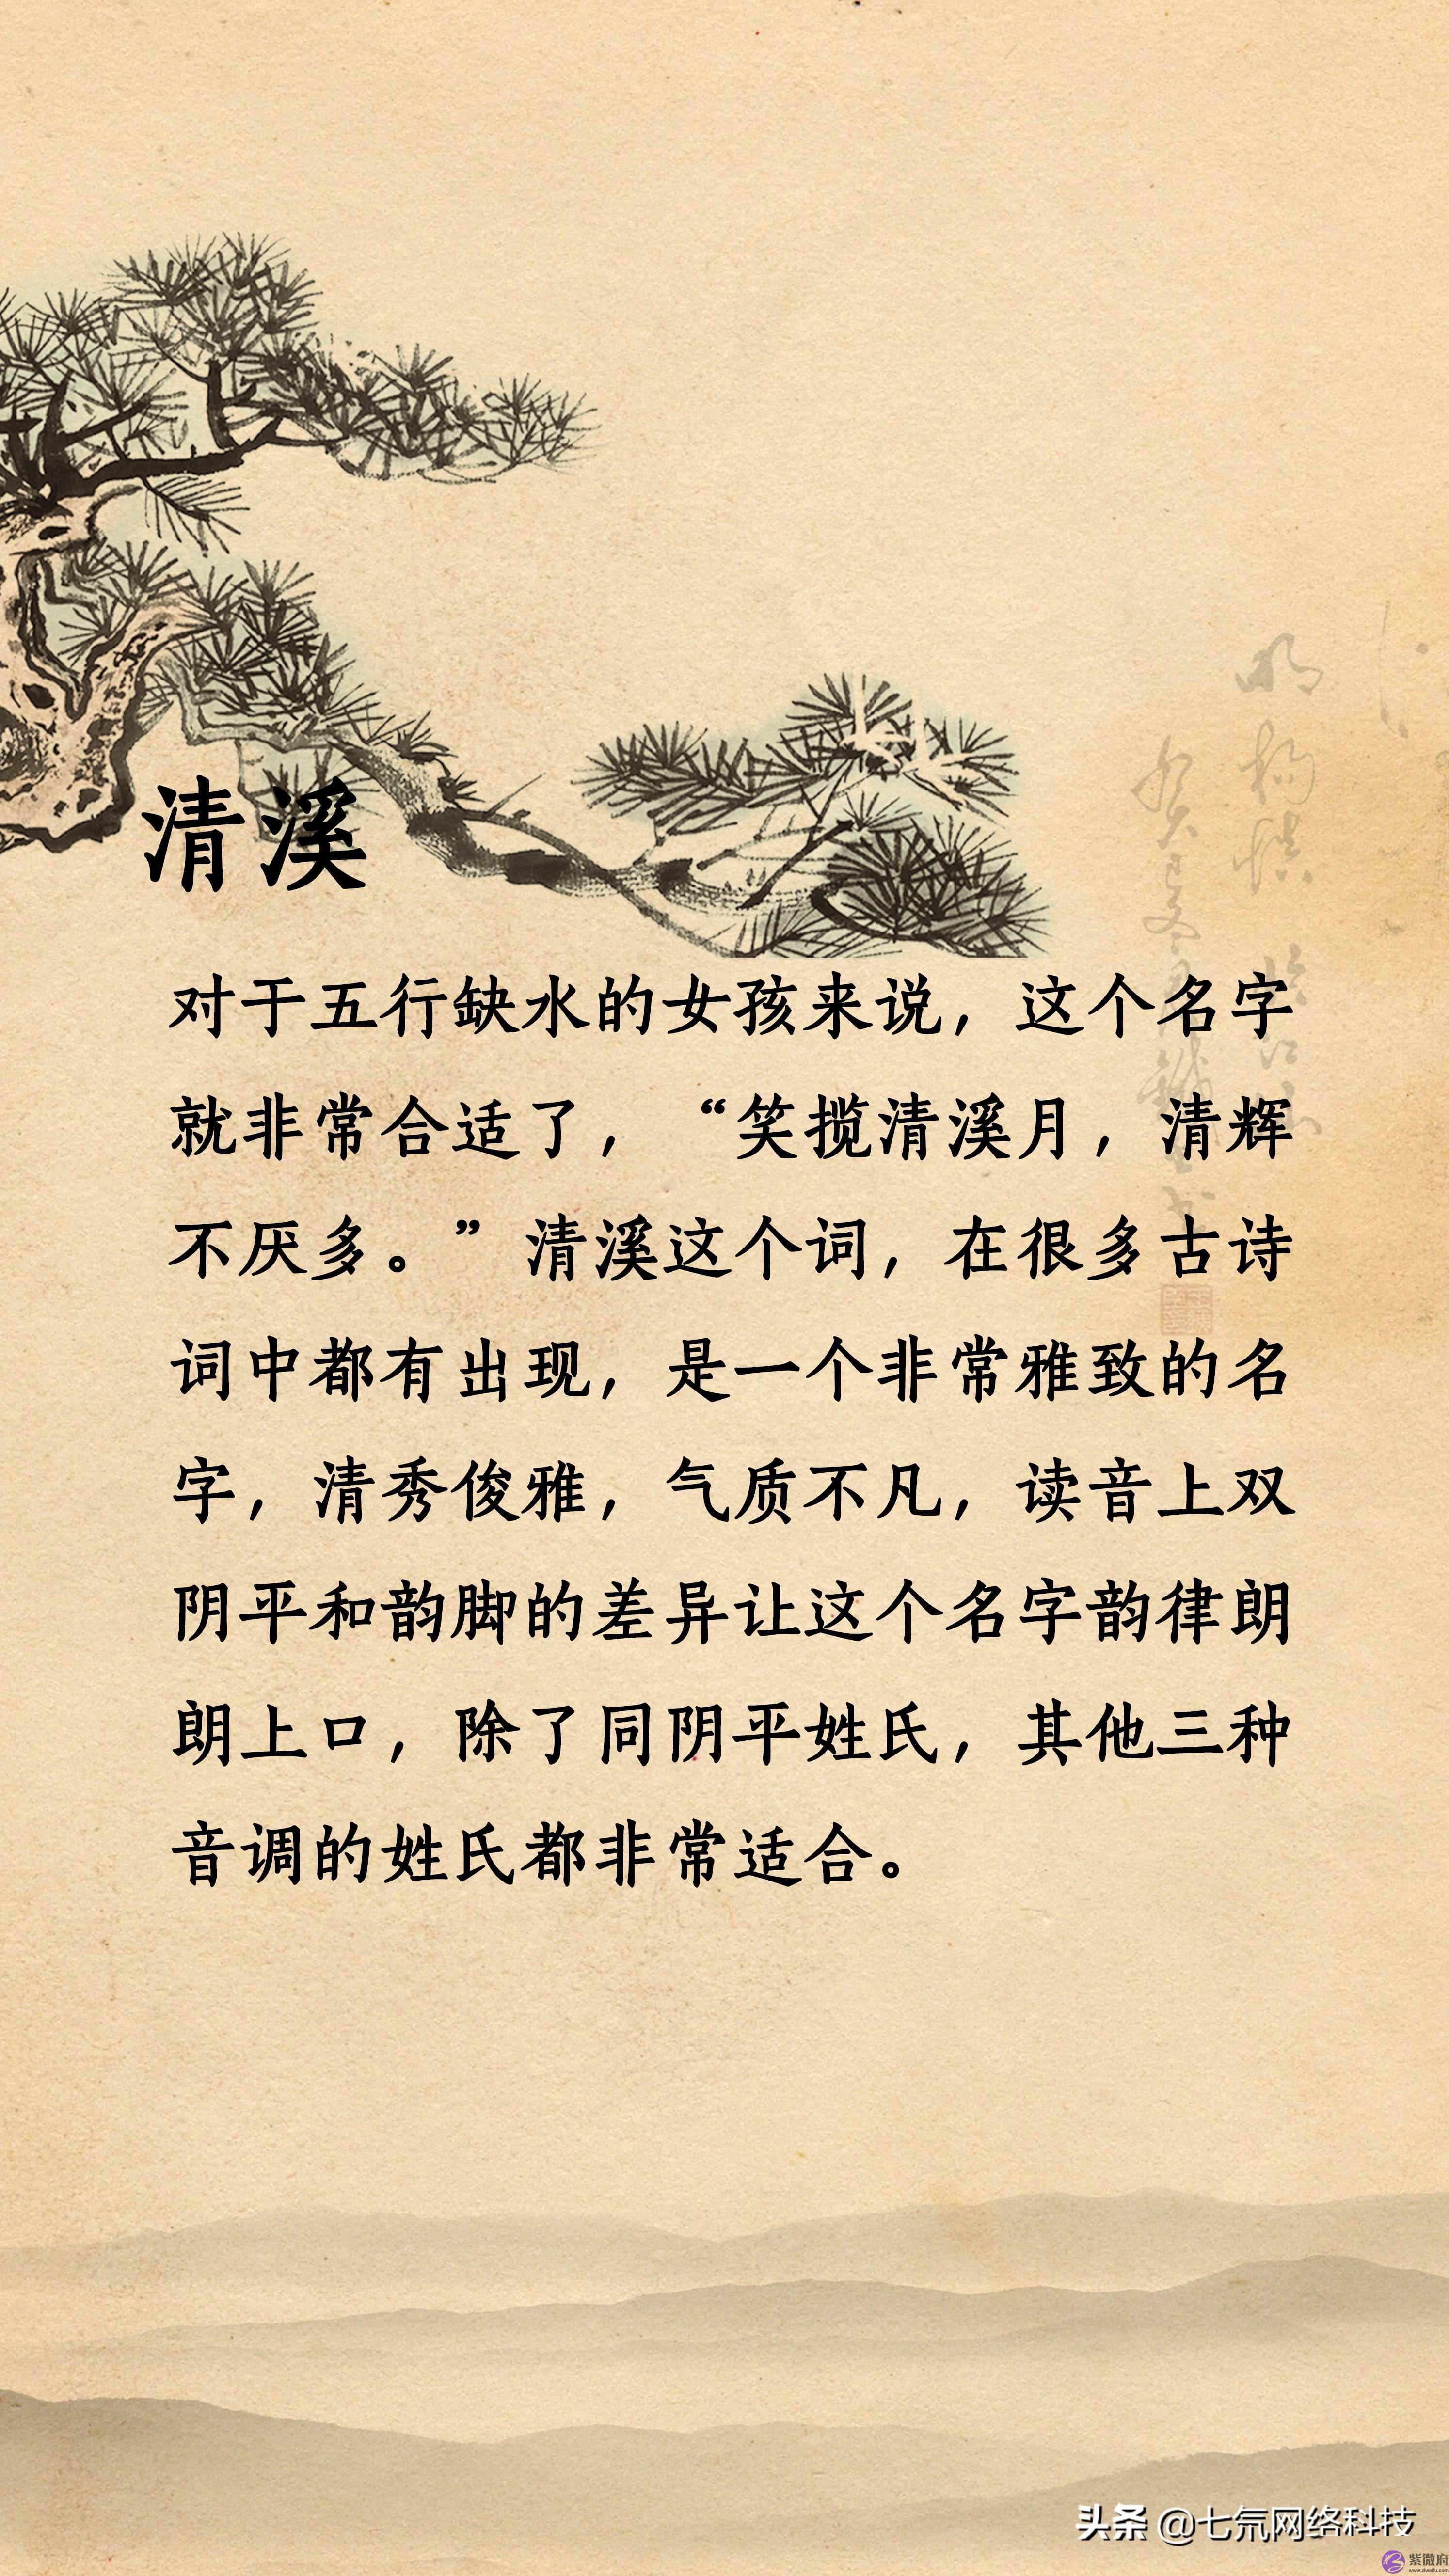 清溪
对于五行缺水的女孩来说，这个名字
就非常合适了，“笑揽清溪月，清辉
不厌多。”清溪这个词，在很多古诗
词中都有出现，是一个非常雅致的名
字，清秀俊雅，气质不凡，读音上双
阴平和韵脚的差异让这个名字韵律朗
朗上口，除了同阴平姓氏，其他三种
音调的姓氏都非常适合。
头条 @七氘网络科技
紫微府